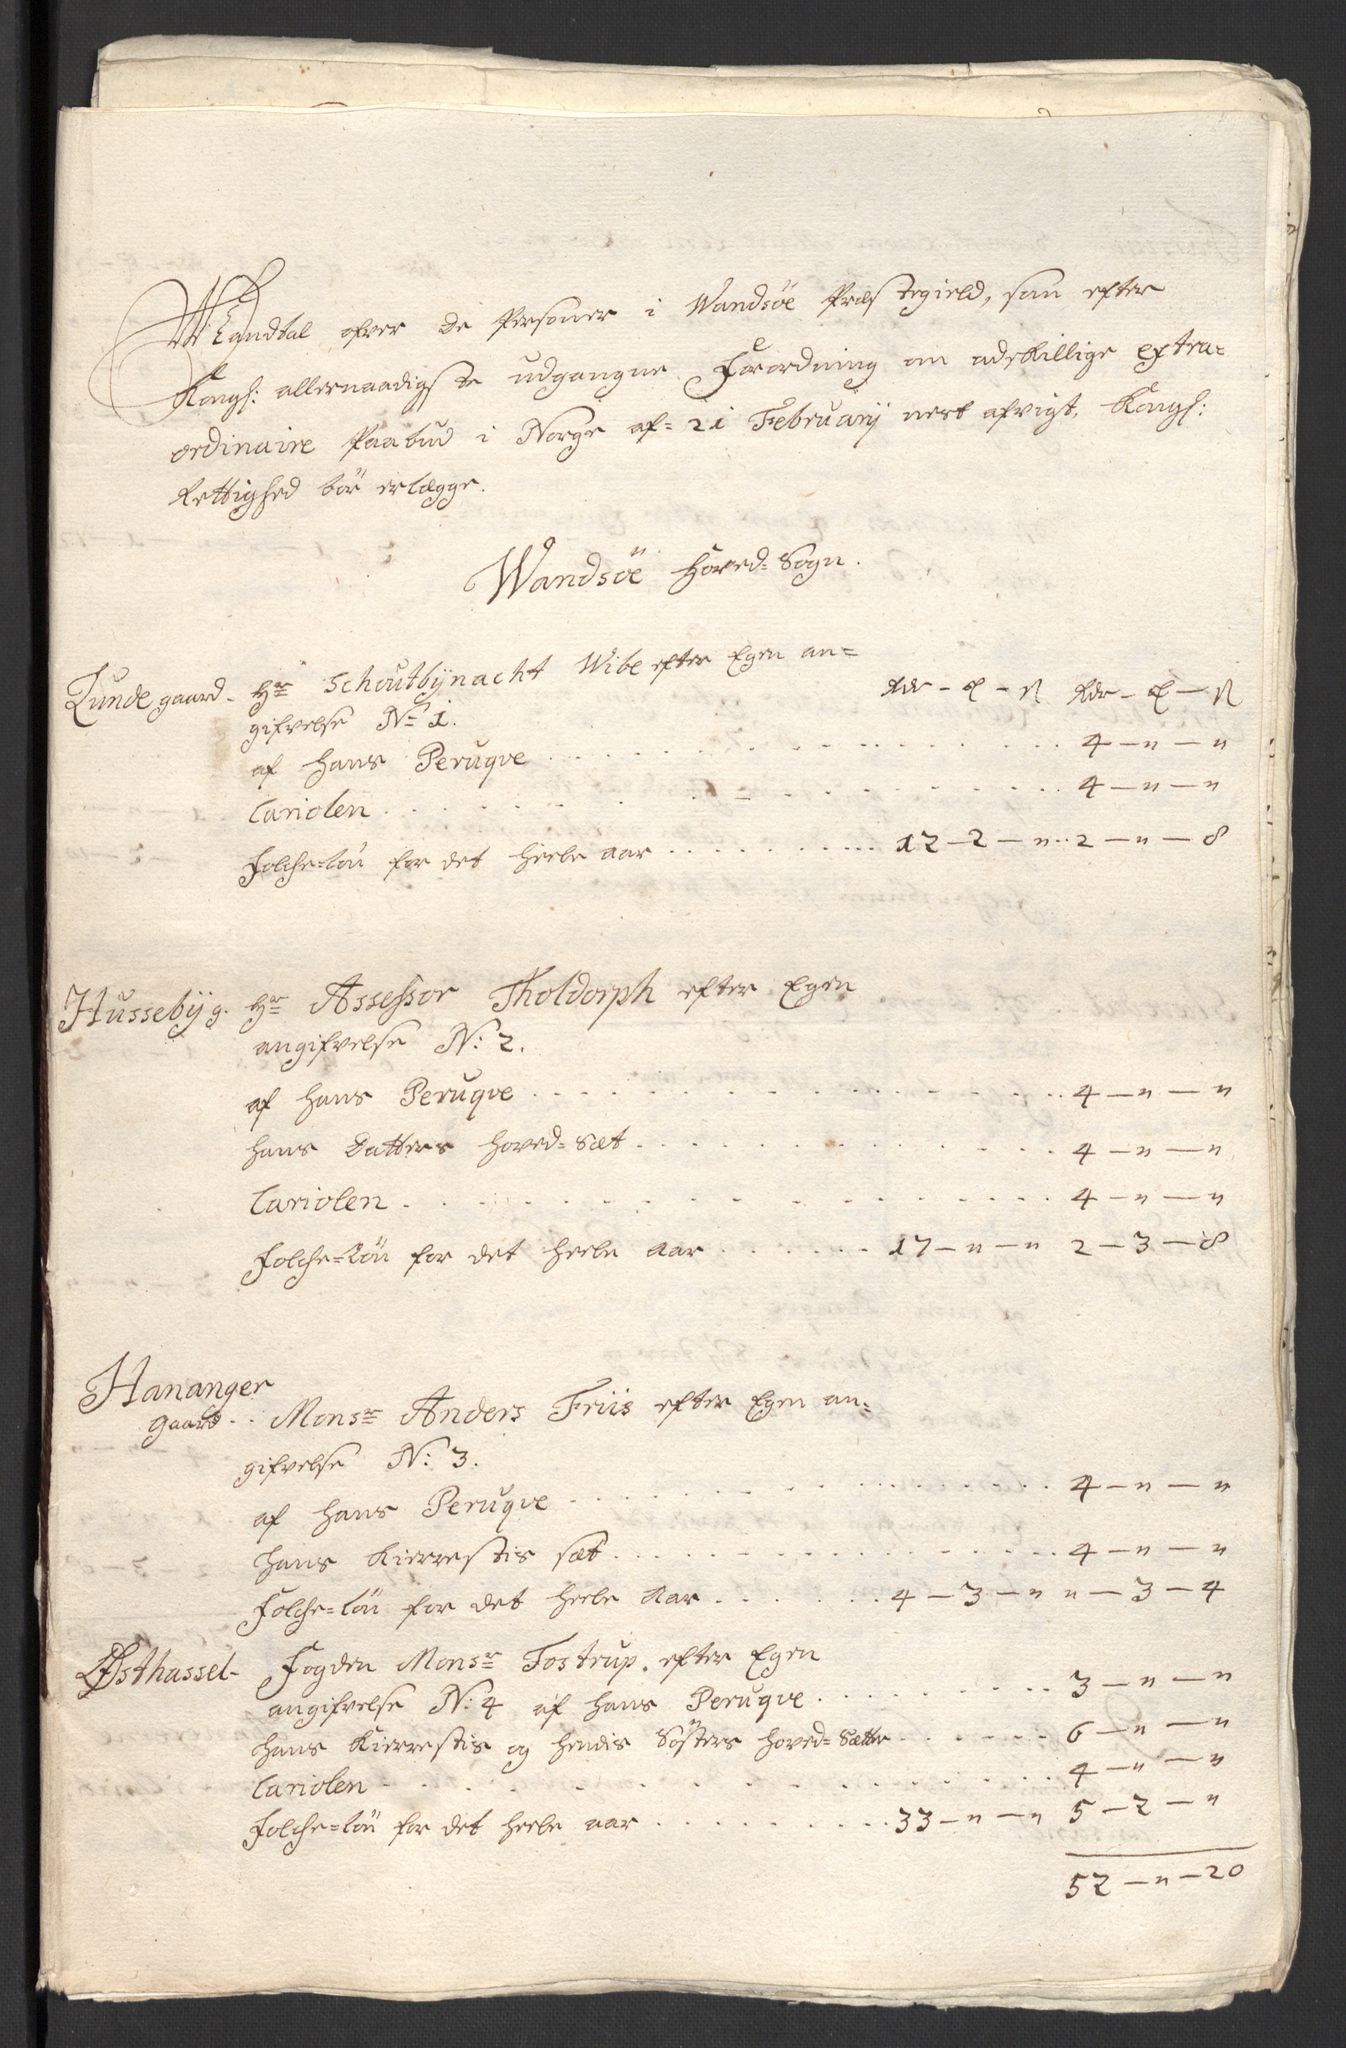 Mandtal ofver De Personer i Wandsöe Præstegield, som efter
Kongl: allernaadigste udgangne Forordning om adskillige extra-
ordinaire Paabud i Norge af 21 Februarij nest afvigt, Kongl:
Rettighed bör erlægge.
Wandsöe Hoved-Sogn.
Rdr - [ort] - ß Rdr - [ort] - ß
Lunde gaard - Hr Schoutbynacht Wibe efter Egen an=
gifvelse No 1.
af hans Peruqve . . . 4 - " - "
Cariolen . . . 4 - " - "
Folche-Lön for det heele Aar . . . 12 - 2 - " . . 2 - " - 8
Hussebÿg. Hr Assessor Tholdorph efter Egen
angifvelse N: 2.
af hans Peruqve . . . 4 - " - "
hans Datters hoved-Sæt . . . 4 - " - "
Cariolen . . . 4 - " - "
Folche-Lön for det heele Aar . . . 17 - " - " 2 - 3 - 8
Hananger
gaard . . Monsr Anders Friis efter Egen an=
gifvelse N: 3.
af hans Peruqve . . . 4 - " - "
hans Kierrestis sæt . . . 4 - " - "
Folche-Lön for det heele Aar . . . 4 - 3 - " " - 3 - 4
Østhassel - Fogden Monsr Tostrup. efter Egen
angifvelse N: 4 af hans Peruqve . . . 3 - " - "
hans Kierrestis og hendis Sösters hoved-Sætte . . . 6 - " - "
Cariolen . . . 4 - " - "
Folche-Lön for det heele aar . . . 33 - " - " 5 - 2 - "
52 - " - 20